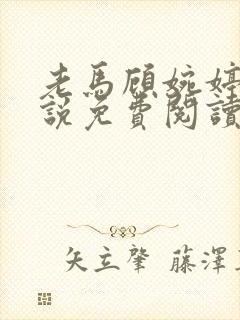 老馬顧婉婷
說免費閱讀
矢立肇 藤澤